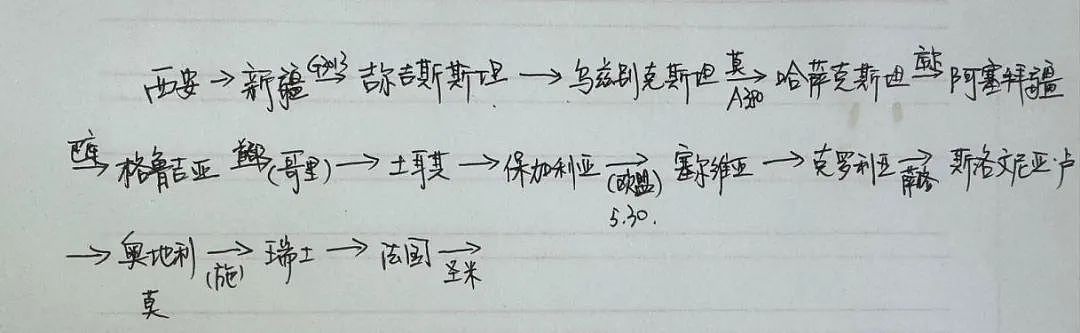 西安→新疆 G3013→ 吉尔吉斯斯坦 → 乌兹别克斯坦 莫→ A380 哈萨克斯坦 → 阿塞拜疆
→ 格鲁吉亚 (哥里) → 土耳其 → 保加利亚 → (欧盟) 5.30. 塞尔维亚 → 克罗利亚 → 斯洛文尼亚·卢
→ 奥地利 莫 → (施) 瑞士 → 法国 → 圣米